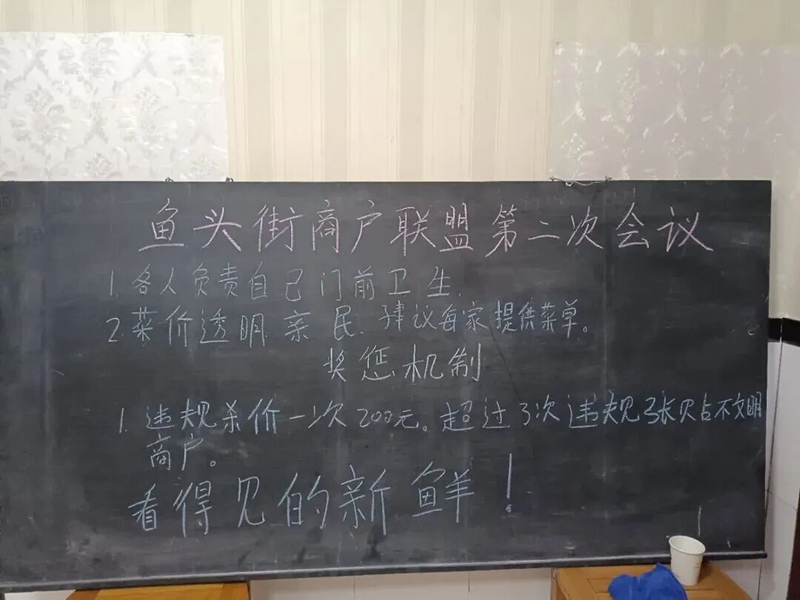 鱼头街商户联盟第二次会议
1. 各人负责自己门前卫生.
2. 菜价透明.亲民.建议每家提供菜单。
奖惩机制
1. 违规杀价一次200元。超过3次违规张贴不文明
商户。
看得见的新鲜！